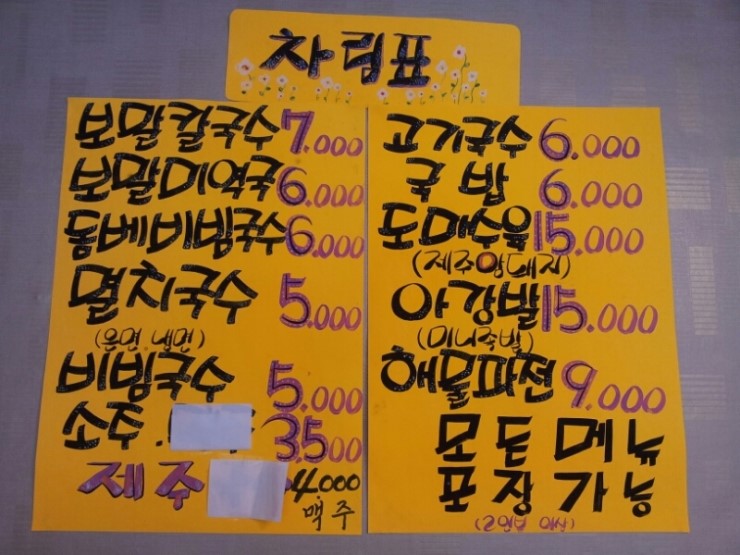 차림표
보말칼국수 7.000
보말미역국 6.000
돔베비빔국수 6.000
멸치국수 5.000
(온면.냉면)
비빔국수 5.000
소주. 3.500
제주 4.000
맥주
고기국수 6.000
국밥 6.000
도매수육 15.000
(제주암돼지)
아강발 15.000
(미니족발)
해물파전 9.000
모든메뉴
포장가능
(2인분 이상)